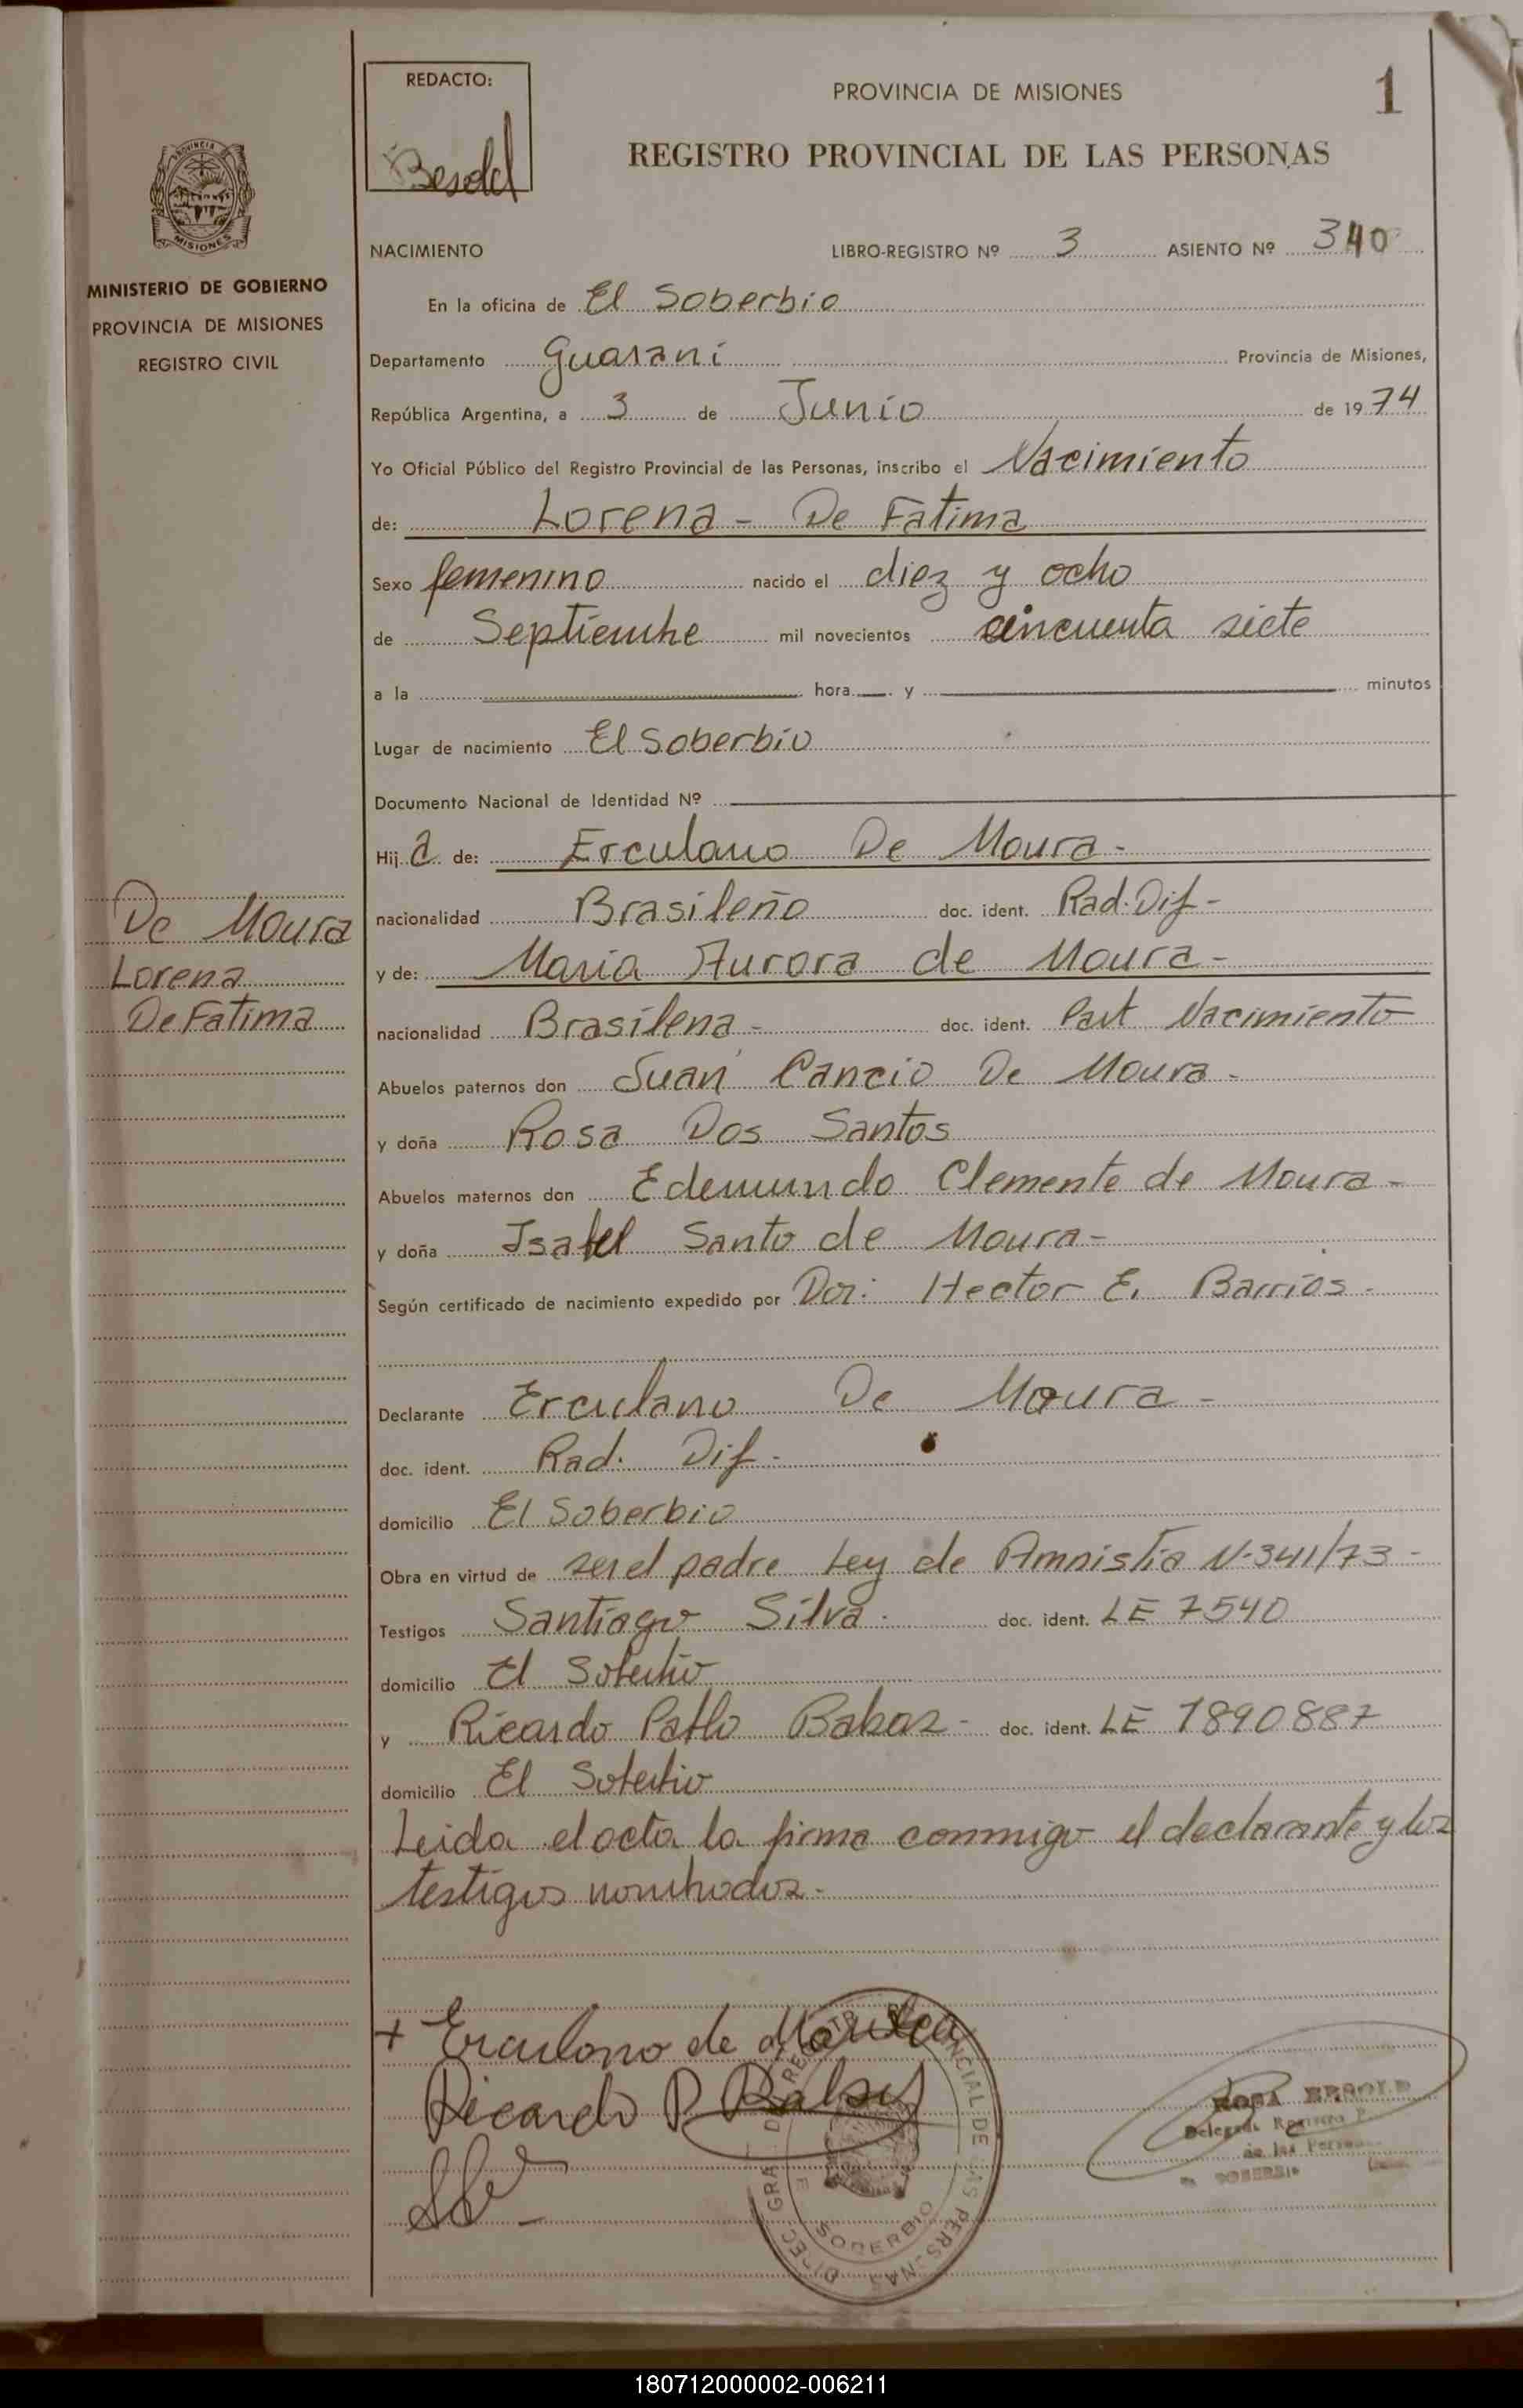 REDACTO:
Besold
PROVINCIA DE MISIONES
1
REGISTRO PROVINCIAL DE LAS PERSONAS
PROVINCIA
MISIONES
MINISTERIO DE GOBIERNO
PROVINCIA DE MISIONES
REGISTRO CIVIL
NACIMIENTO LIBRO-REGISTRO Nº 3 ASIENTO Nº 340
En la oficina de El Soberbio
Departamento Guarani Provincia de Misiones,
República Argentina, a 3 de Junio de 1974
Yo Oficial Público del Registro Provincial de las Personas, inscribo el Nacimiento
de: Lorena - De Fatima
Sexo femenino nacido el diez y ocho
de Septiembre mil novecientos cincuenta siete
a la hora y minutos
Lugar de nacimiento El Soberbio
Documento Nacional de Identidad Nº
Hija de: Erculano De Moura -
nacionalidad Brasileño doc. ident. Rad. Dif -
y de: Maria Aurora de Moura -
nacionalidad Brasilena - doc. ident. Part Nacimiento
Abuelos paternos don Juan Cancio De Moura -
y doña Rosa Dos Santos
Abuelos maternos don Edemundo Clemente de Moura -
y doña Isabel Santo de Moura -
Según certificado de nacimiento expedido por Dor: Hector E. Barrios -
Declarante Erculano De Moura -
doc. ident. Rad. Dif -
domicilio El Soberbio
Obra en virtud de ser el padre Ley de Amnistia N-341/73 -
Testigos Santiago Silva - doc. ident. LE 7540
domicilio El Soberbio
y Ricardo Pablo Babaz - doc. ident. LE 7890887
domicilio El Soberbio
Leida el acta la firma conmigo el declarante y los
testigos nombrados -
De Moura
Lorena
De Fatima
+ Erculono de Moura
Ricardo P. Babaz
ROSA BESOLD
Delegada Registro P.
de las Personas
SOBERBIO
180712000002-006211